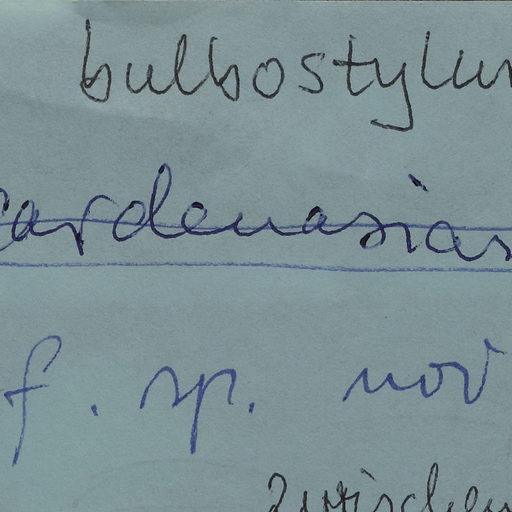 bulbostylum
cardenasian
f. sp. nov
zwischen